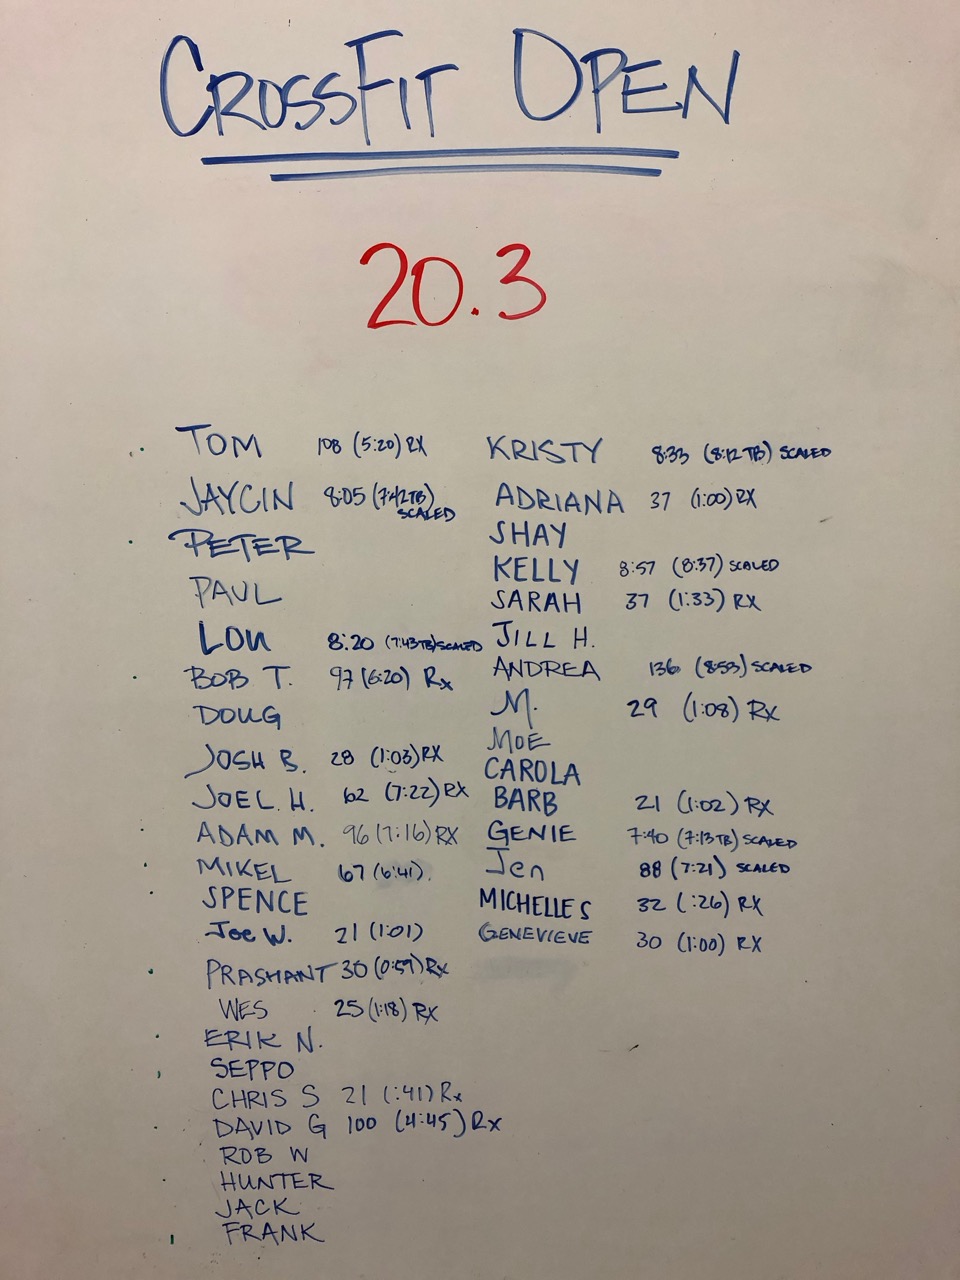 CROSSFIT OPEN
20.3
TOM 108 (5:20) RX
JAYCIN 8:05 (7:42TB) SCALED
PETER
PAUL
LOU 8:20 (7:43TB) SCALED
BOB T. 97 (6:20) Rx
DOUG
JOSH B. 28 (1:03) RX
JOEL H. 62 (7:22) RX
ADAM M. 96 (7:16) RX
MIKEL 67 (6:41)
SPENCE
Joe W. 21 (1:01)
PRASHANT 30 (0:59) Rx
WES 25 (1:18) RX
ERIK N.
SEPPO
CHRIS S 21 (:41) Rx
DAVID G 100 (4:45) Rx
ROB W
HUNTER
JACK
FRANK
KRISTY 8:33 (8:12 TB) SCALED
ADRIANA 37 (1:00) RX
SHAY
KELLY 8:57 (8:37) SCALED
SARAH 37 (1:33) RX
JILL H.
ANDREA 136 (8:53) SCALED
M. 29 (1:08) Rx
MOE
CAROLA
BARB 21 (1:02) RX
GENIE 7:40 (7:13TB) SCALED
Jen 88 (7:21) SCALED
MICHELLE S 32 (:26) RX
GENEVIEVE 30 (1:00) RX